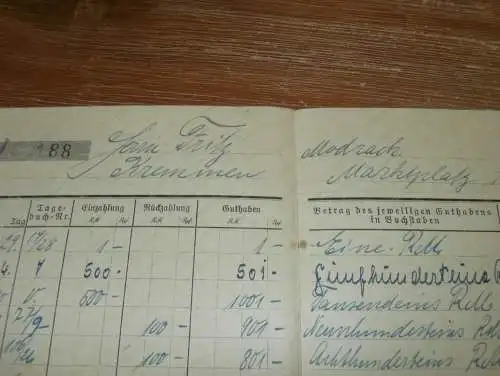 188 Fritz Modrach
Kremmen Marktplatz
Tag Tage- Einzahlung Rückzahlung Guthaben Betrag des jeweiligen Guthabens
buch-Nr. RM Rpf RM Rpf RM Rpf in Buchstaben
29. 1 - 1 - Eine RM
4. 7 500 - 501 - Fünfhunderteins
500 - 1001 - Tausendeins RM
27/9 100 - 901 - Neunhunderteins
100 - 801 - Achthunderteins